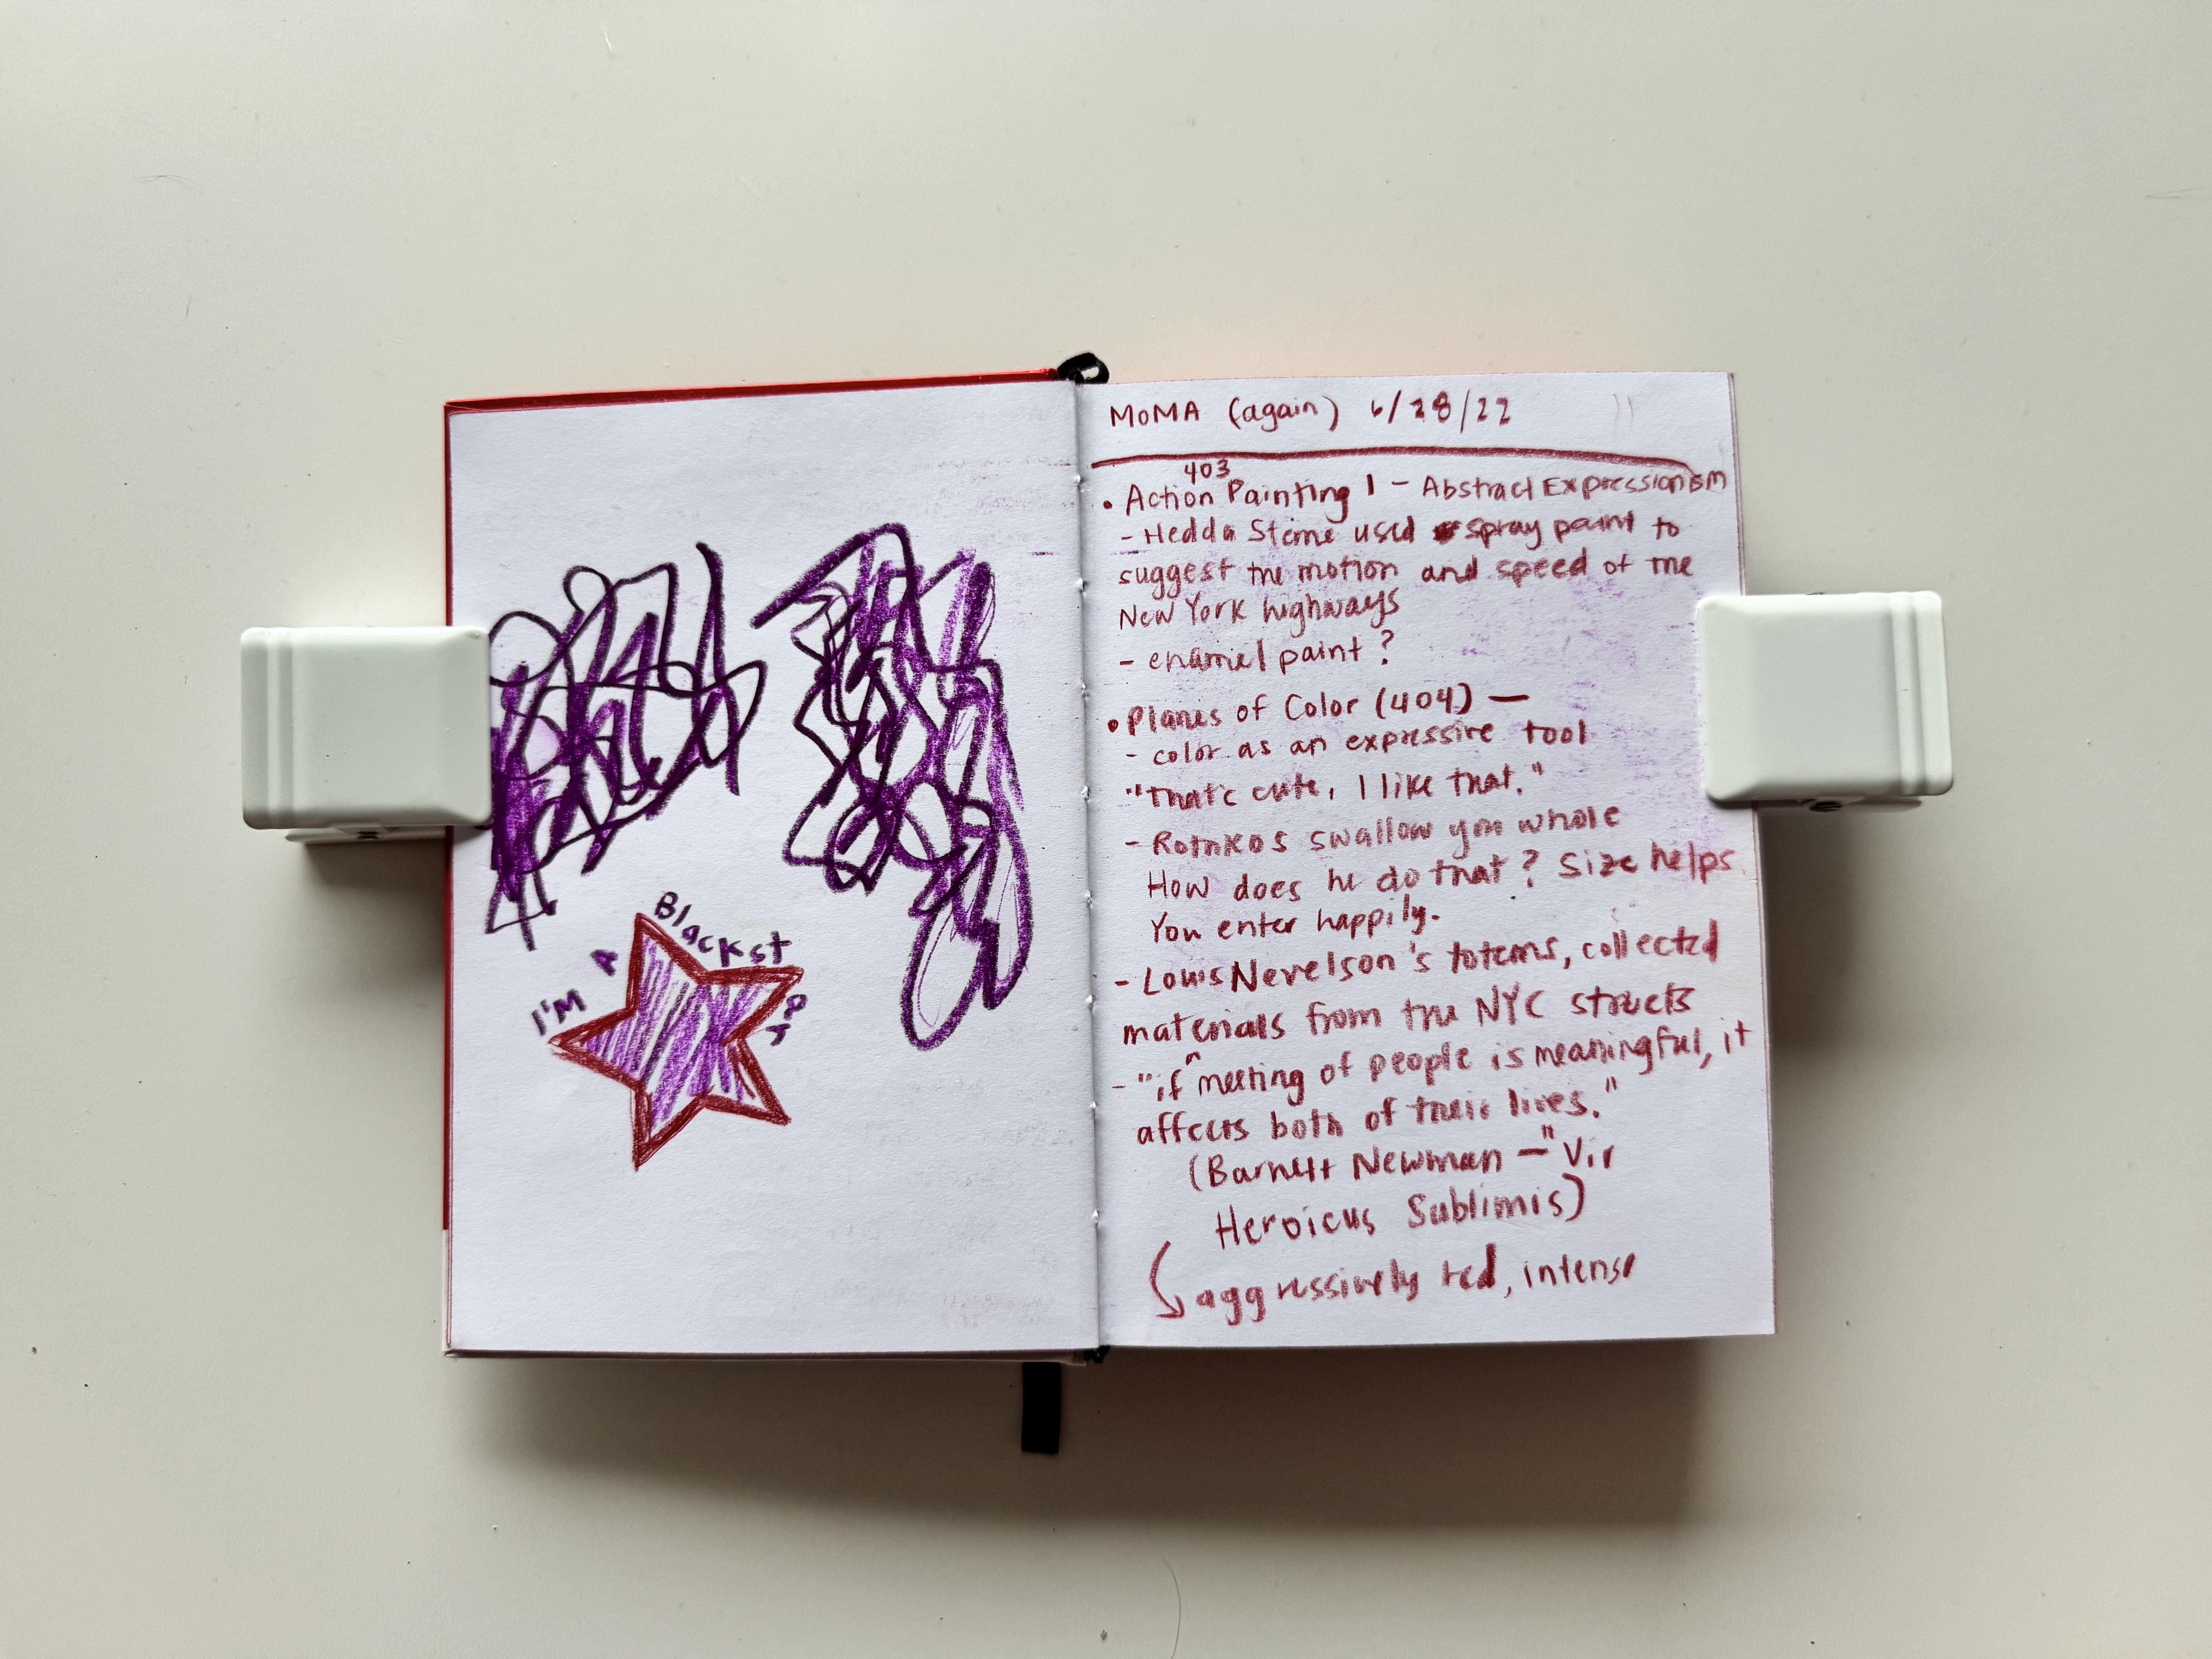 I'M A Blackstar
MoMA (again) 6/28/22
403
• Action Painting 1 – Abstract Expressionism
- Hedda Sterne used spray paint to
suggest the motion and speed of the
New York highways
- enamel paint?
• Planes of Color (404) —
- color as an expressive tool
"that's cute, I like that."
- Rothkos swallow you whole
How does he do that? Size helps
You enter happily.
- Louis Nevelson's totems, collected
materials from the NYC streets
- "if ^ meeting of people is meaningful, it
affects both of their lives."
(Barnett Newman – "Vir
Heroicus Sublimis)
aggressively red, intense